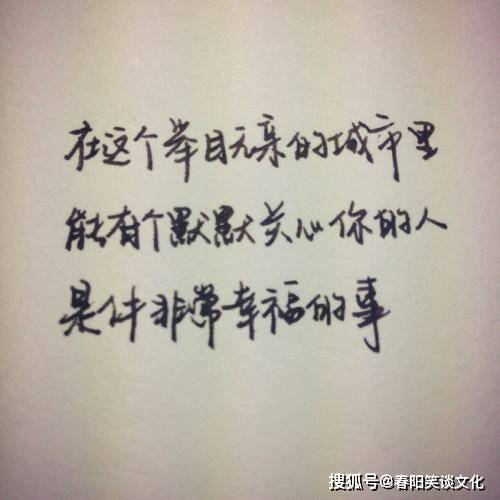 在这个举目无亲的城市里
能有个默默关心你的人
是件非常幸福的事
搜狐号@春阳笑谈文化